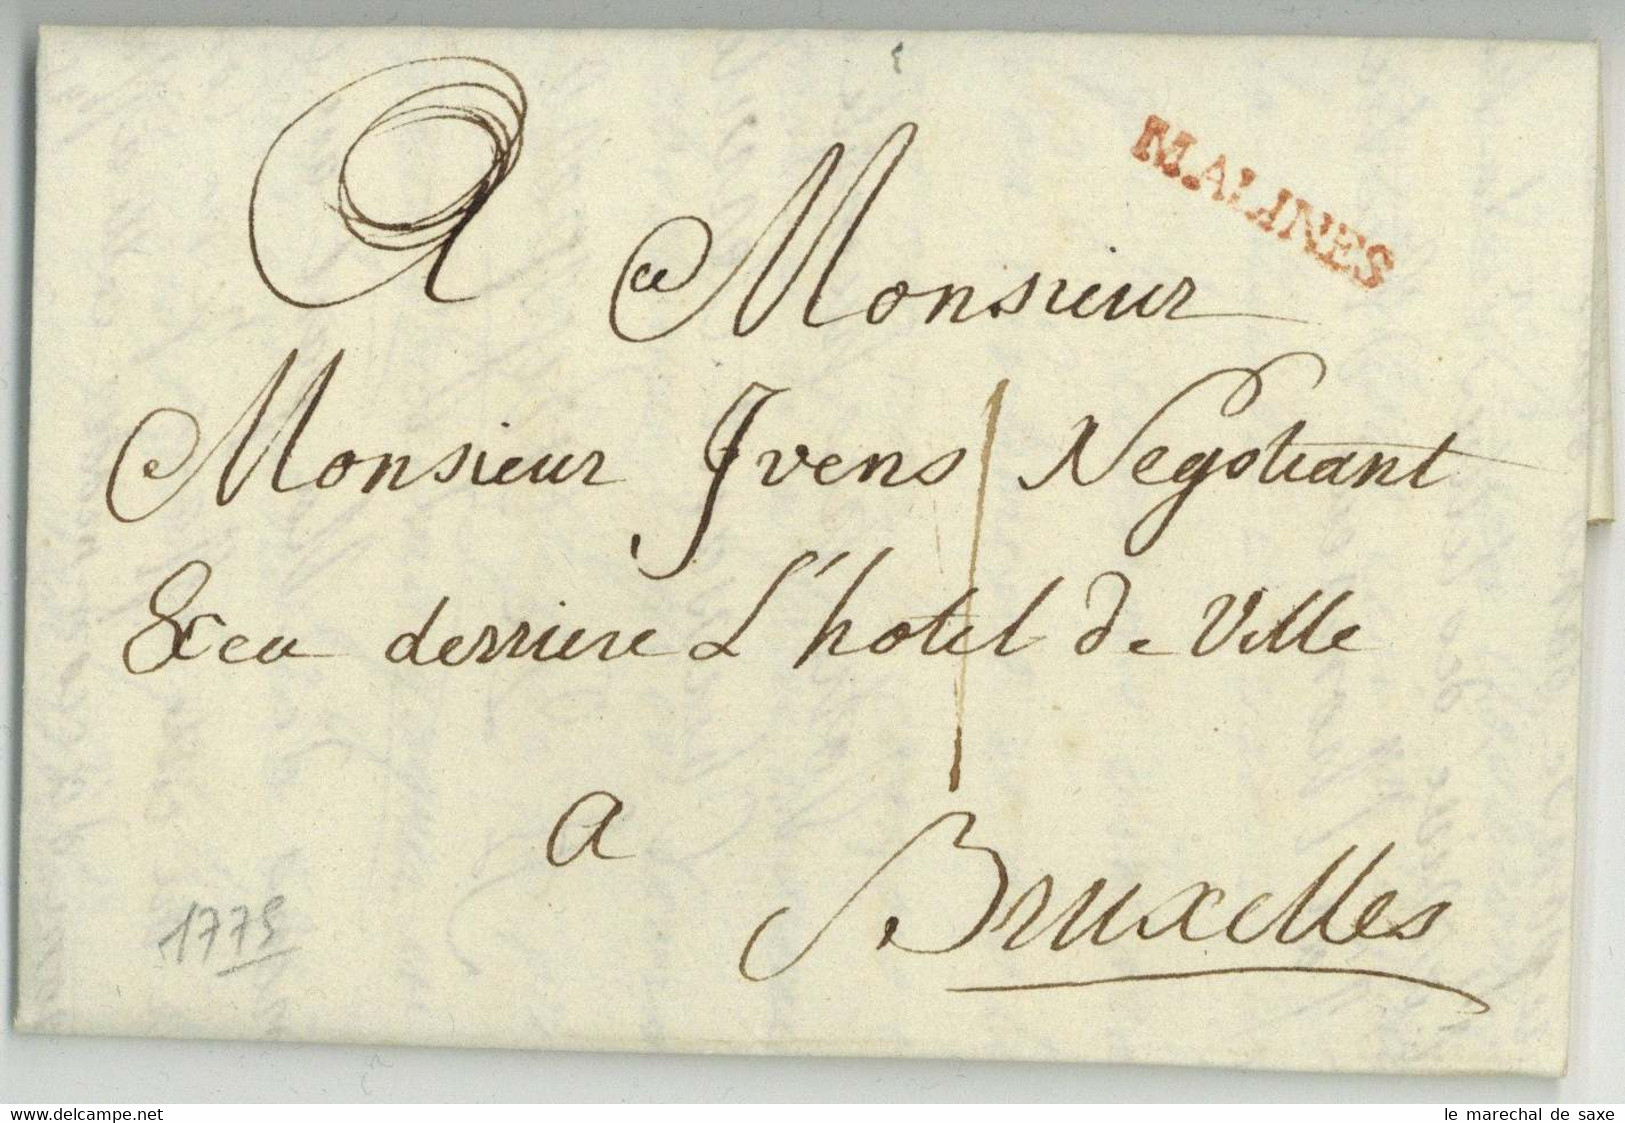 MALINES
A Monsieur
Monsieur Jvens Negotiant
&cea derriere L'hotel de Ville
a
Bruxelles
1775
www.delcampe.net
le marechal de saxe